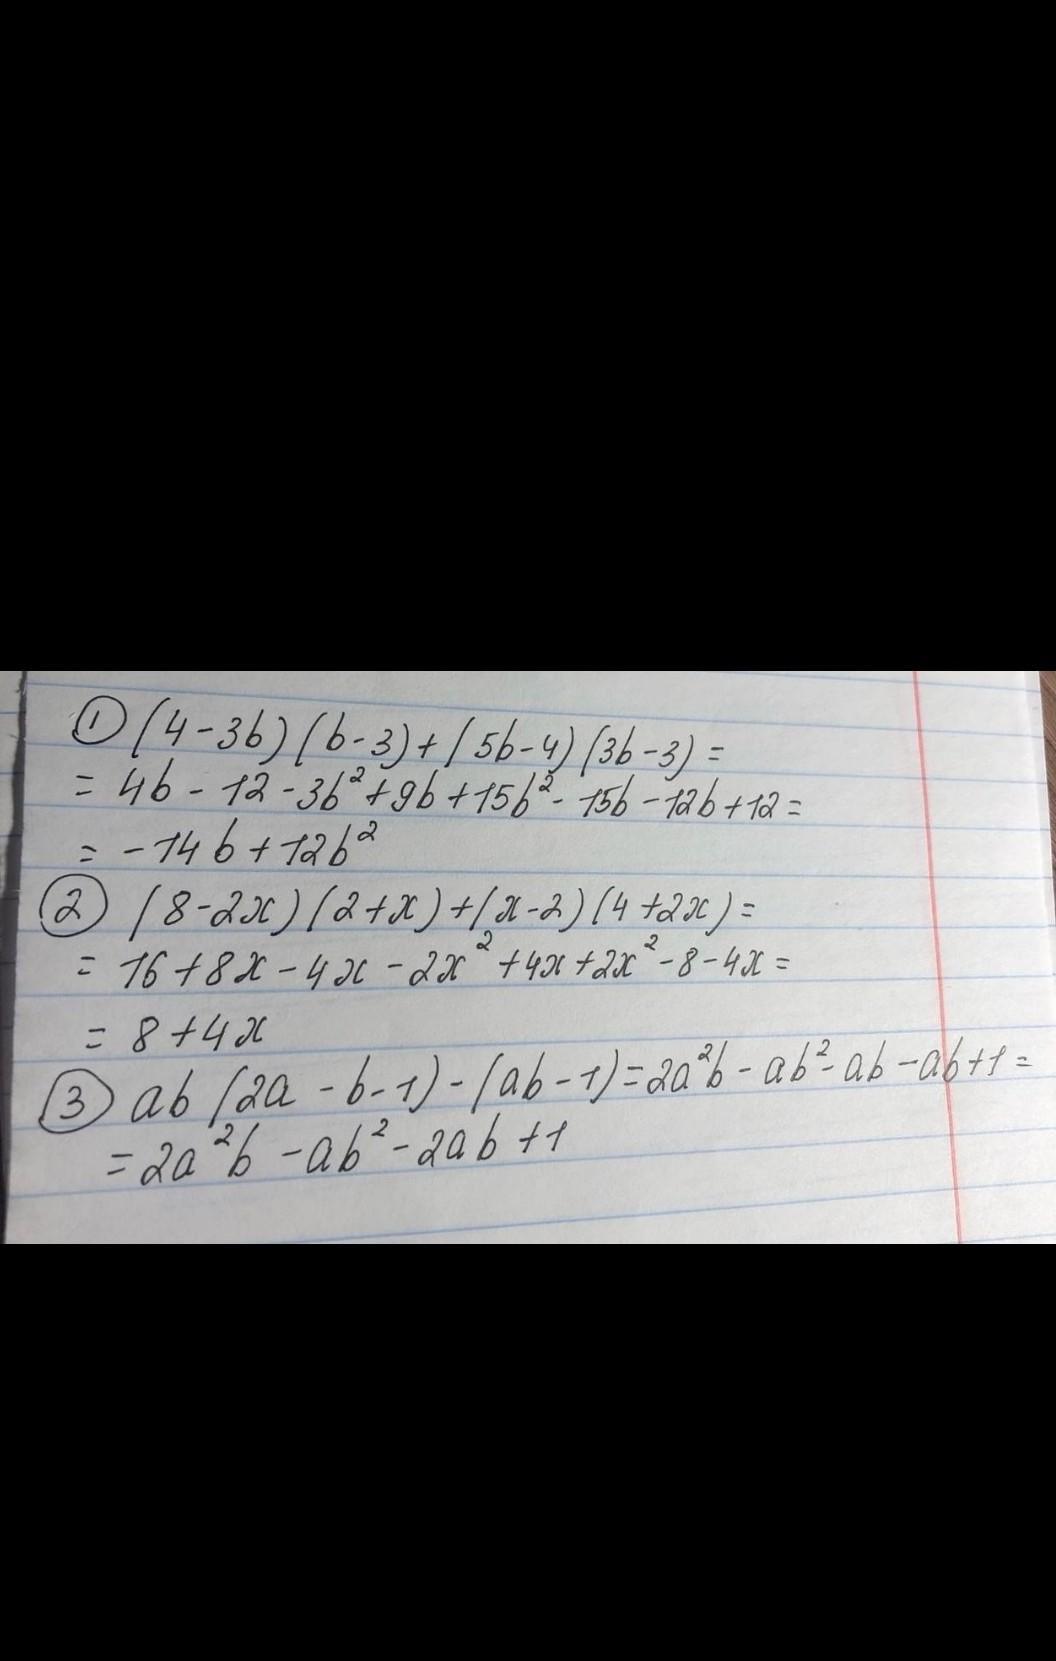 ① (4-3b)(b-3)+(5b-4)(3b-3)=
= 4b - 12 - 3b²+9b+15b²- 15b -12b+12=
= -14b+12b²
② (8-2x)(2+x)+(x-2)(4+2x)=
= 16+8x-4x-2x²+4x+2x²-8-4x=
= 8+4x
③ ab(2a-b-1)-(ab-1)=2a²b-ab²-ab-ab+1=
=2a²b-ab²-2ab+1